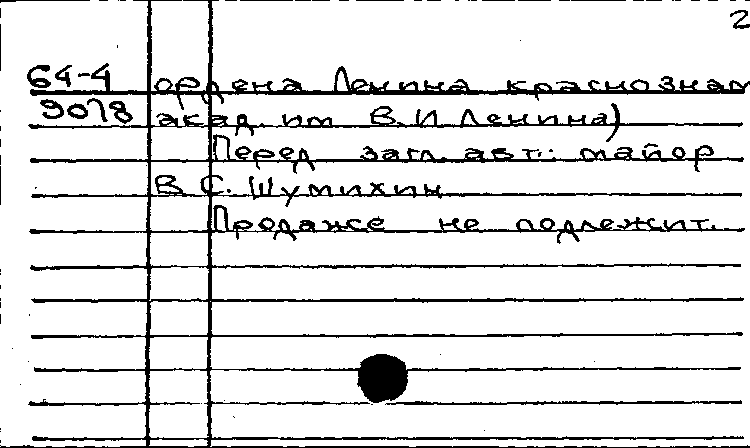 2
64-4 ордена Ленина краснознам
9078 акад. им В.И Ленина)
Перед загл. авт.: майор
В С. Шумихин
Продаже не подлежит.